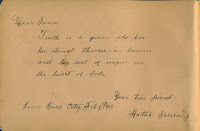 Dear Friend
Truth is a queen who has
her eternal throne in heaven
and her seat of empire in
the heart of God.
Your true friend
River City, Feb 9
Hattie